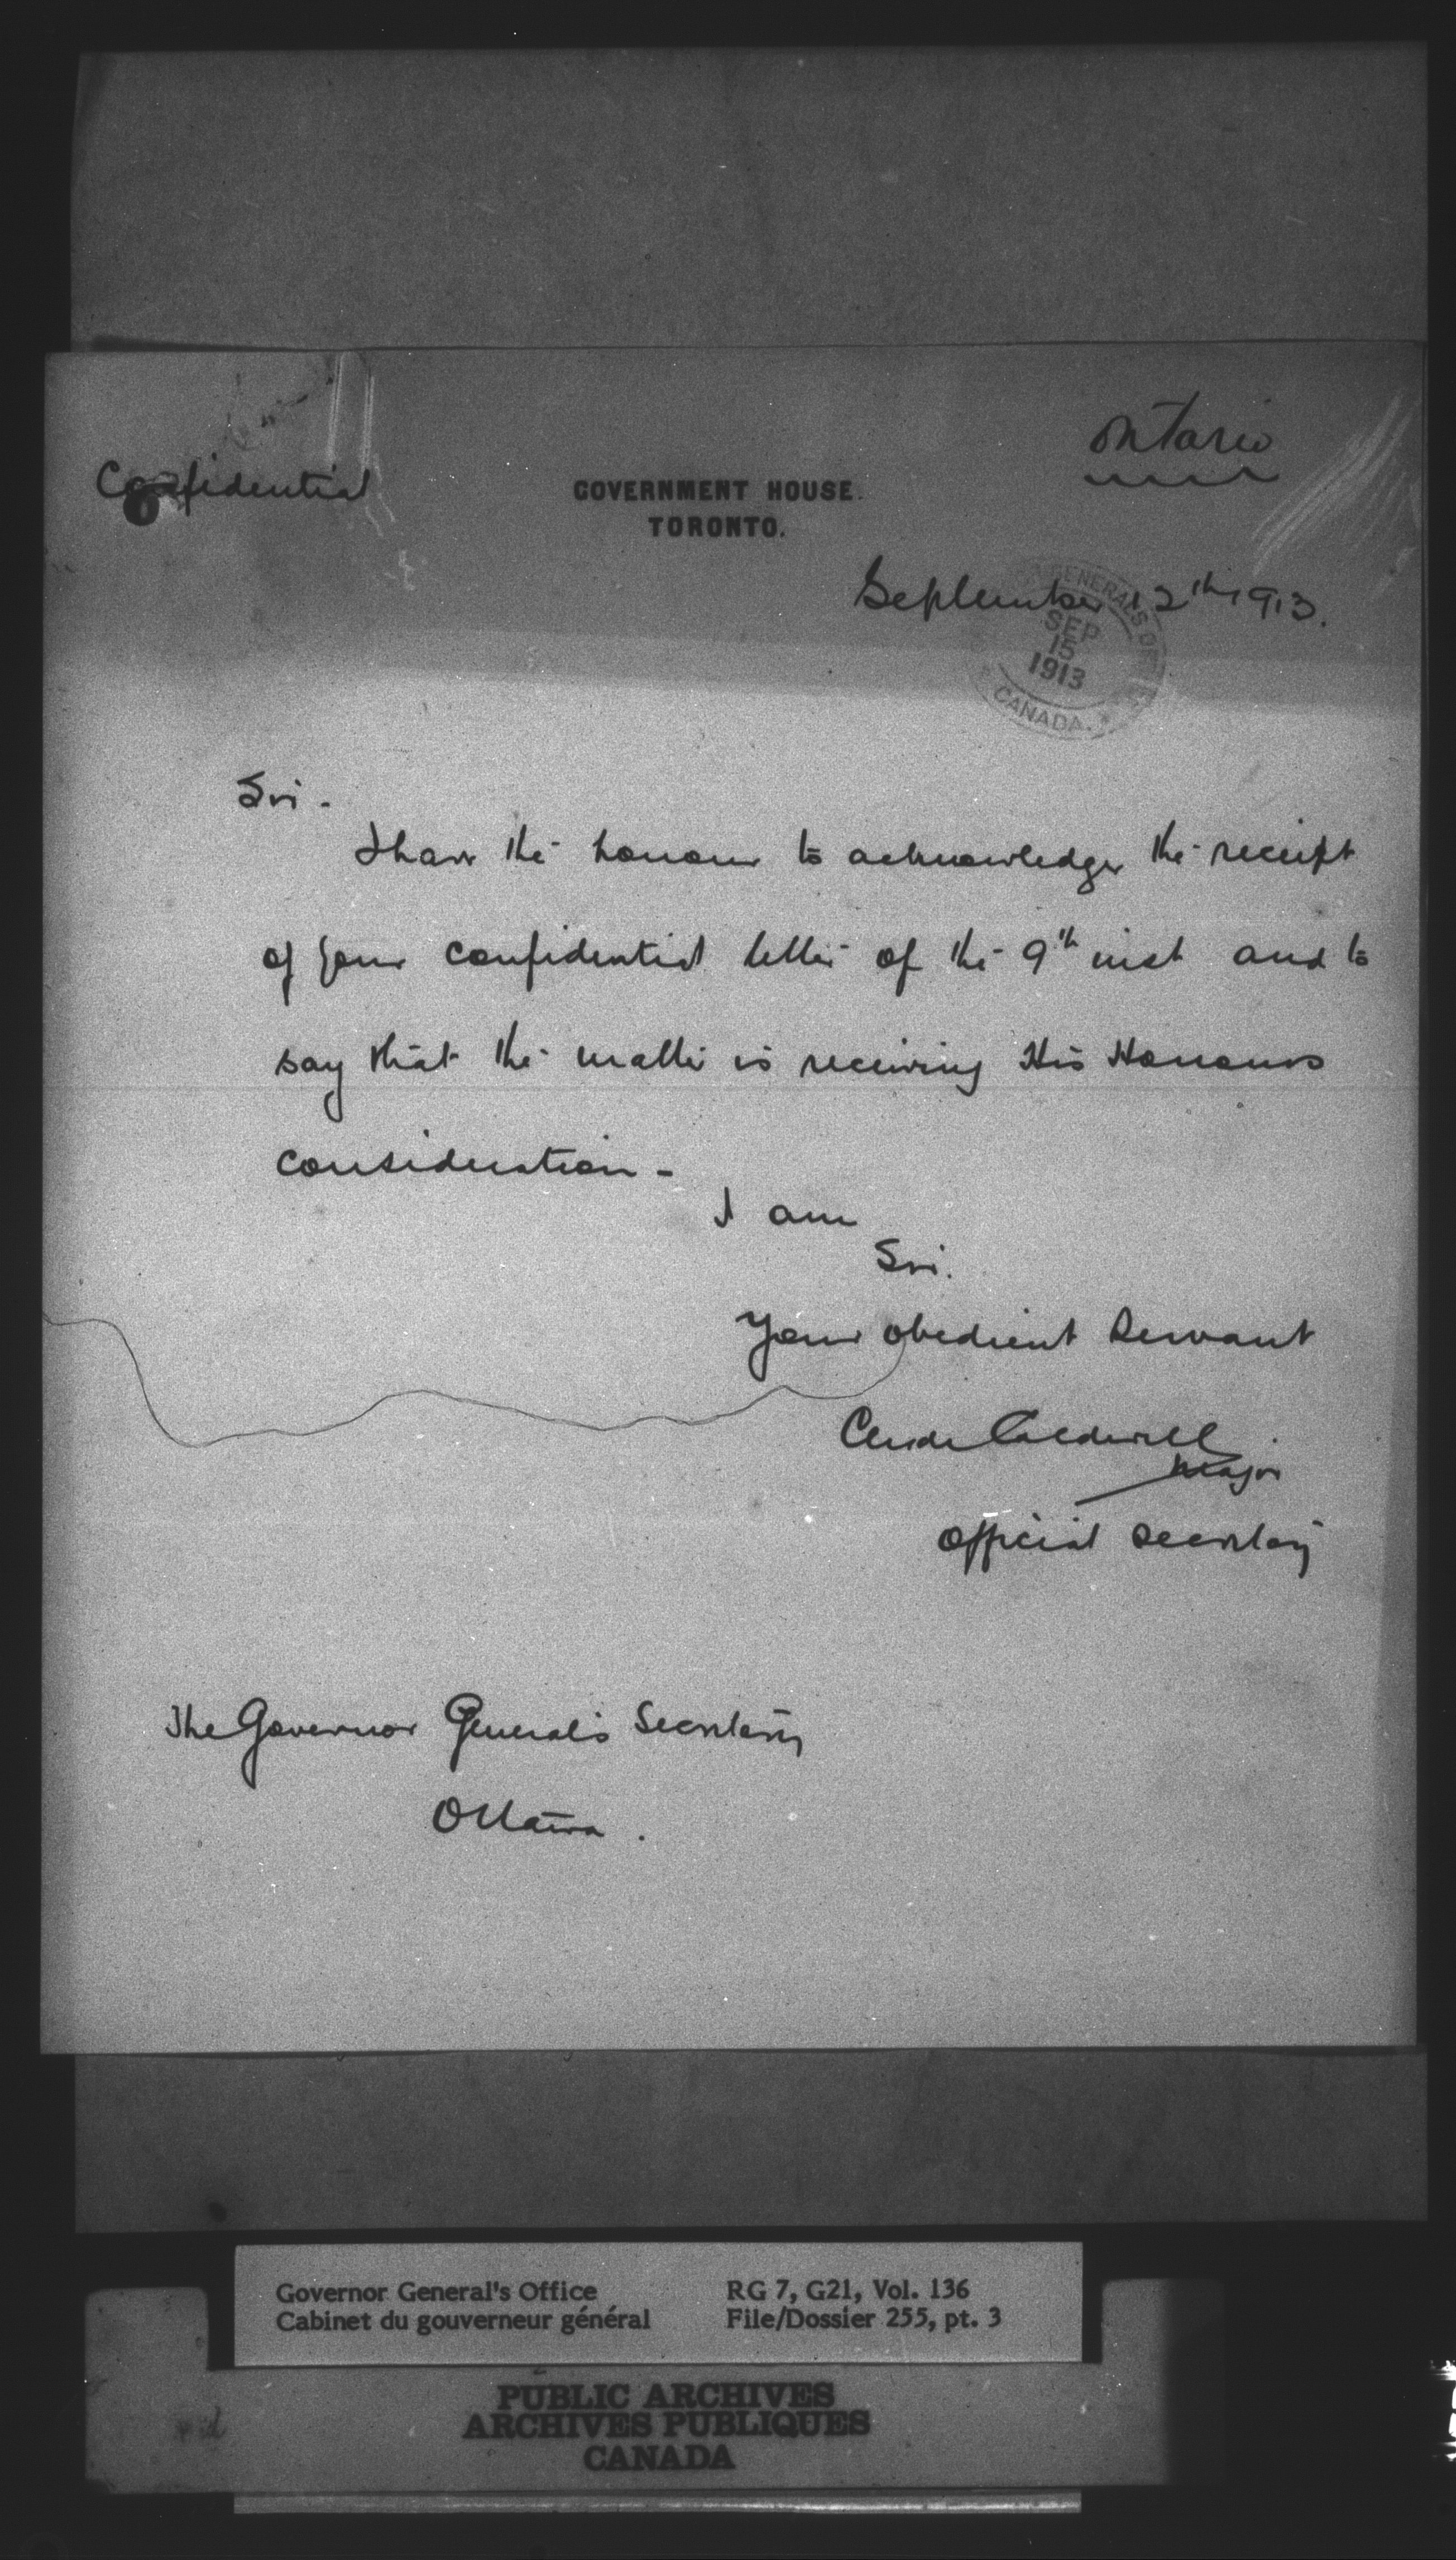 Ontario
Confidential
GOVERNMENT HOUSE.
TORONTO.
September 12th 1913.
GENERAL'S
SEP
15
1913
CANADA.
Sir -
I have the honour to acknowledge the receipt
of your confidential letter of the 9th inst and to
say that the matter is receiving His Honours
consideration -
I am
Sir.
Your obedient Servant
Caldwell
Major
Official Secretary
The Governor General's Secretary
Ottawa.
Governor General's Office
Cabinet du gouverneur général
RG 7, G21, Vol. 136
File/Dossier 255, pt. 3
PUBLIC ARCHIVES
ARCHIVES PUBLIQUES
CANADA